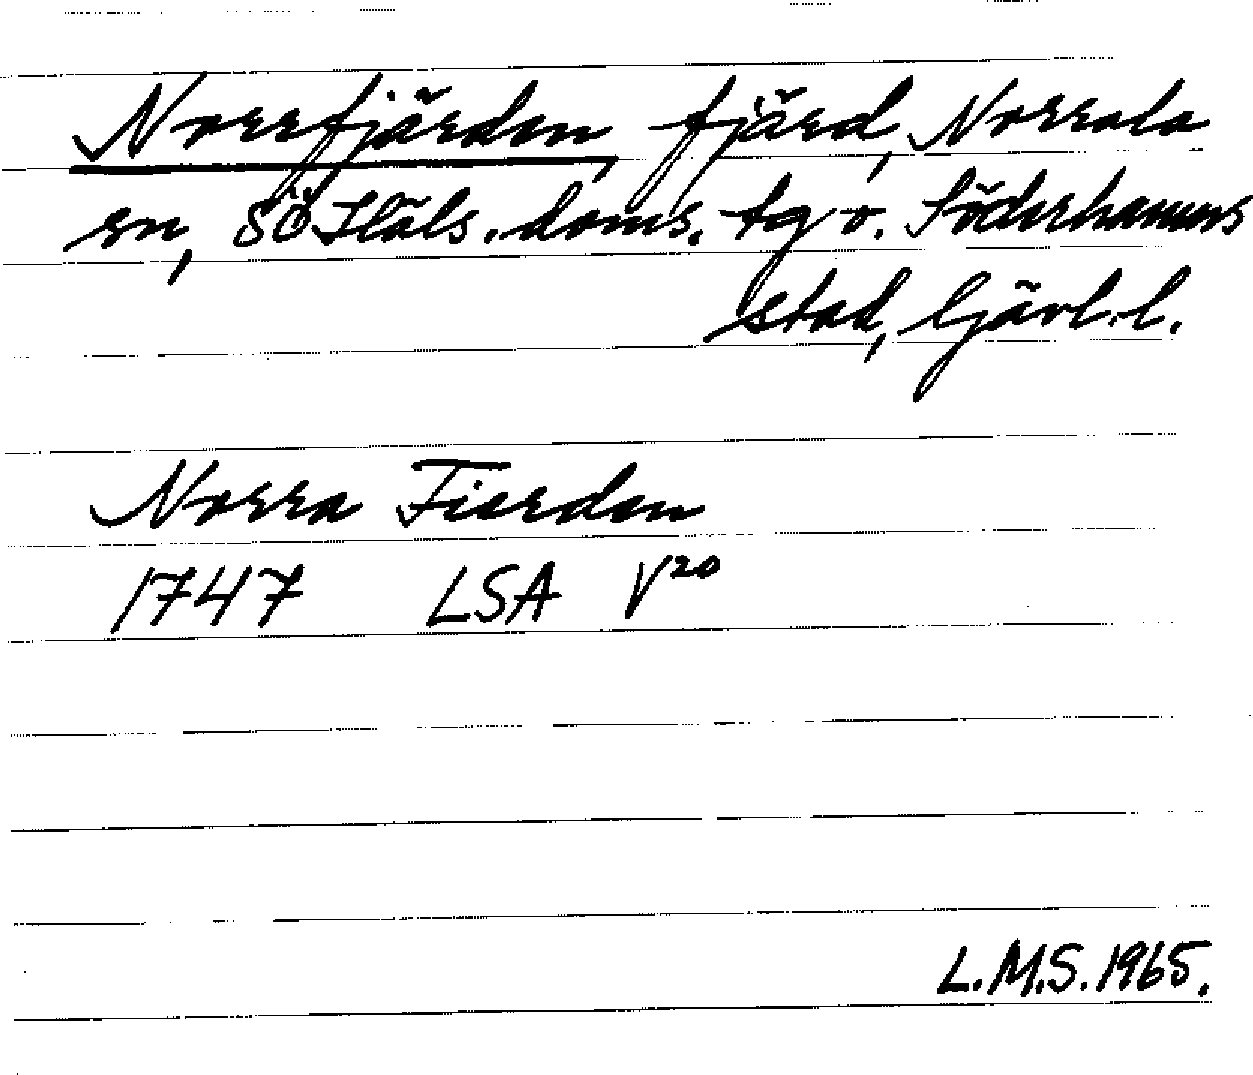 Norrfjärden, fjärd, Norrala
sn, SÖ Häls. doms. tg o. Söderhamns
stad, Gävl. l.
Norra Fierden
1747 LSA V20
L.M.S. 1965.